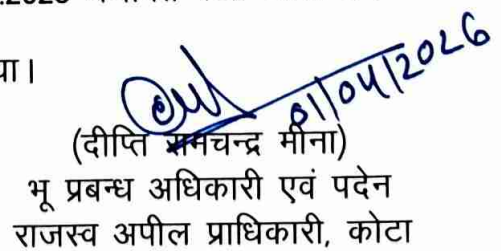 या।
01/04/2026
(दीप्ति रामचन्द्र मीना)
भू प्रबन्ध अधिकारी एवं पदेन
राजस्व अपील प्राधिकारी, कोटा